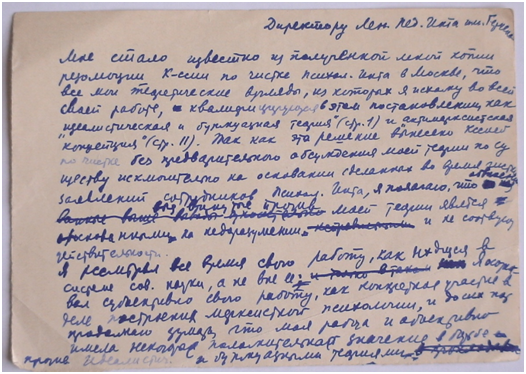 Директору Лен. Пед. Ин-та им. Герцена
Мне стало известно из полученной мной копии
резолюции К-ссии по чистке психол. Ин-та в Москве, что
все мои теоретические взгляды, из которых я исхожу во всей
своей работе, квалифицируются в этом постановлении как
"идеалистическая и буржуазная теория" (стр. 1) и "антимарксистская
концепция" (стр. 11). Так как это решение вынесено К-ссией
по чистке без предварительного обсуждения моей теории по су
ществу исключительно на основании сделанных во время чистки
заявлений сотрудников Психол. Ин-та, я полагаю, что
моей теории явл-ся
на недоразумении и не соответств
действительности.
Я рассматривал все время свою работу, как идущую в
системе сов. науки, а не вне ее; Я
вал субъективно свою работу, как конкретное участие в
деле построения марксистской психологии, и до сих пор
продолжаю думать, что моя работа и объективно
имела некоторое положительное значение в борьбе
против идеалистич. и буржуазными теориями